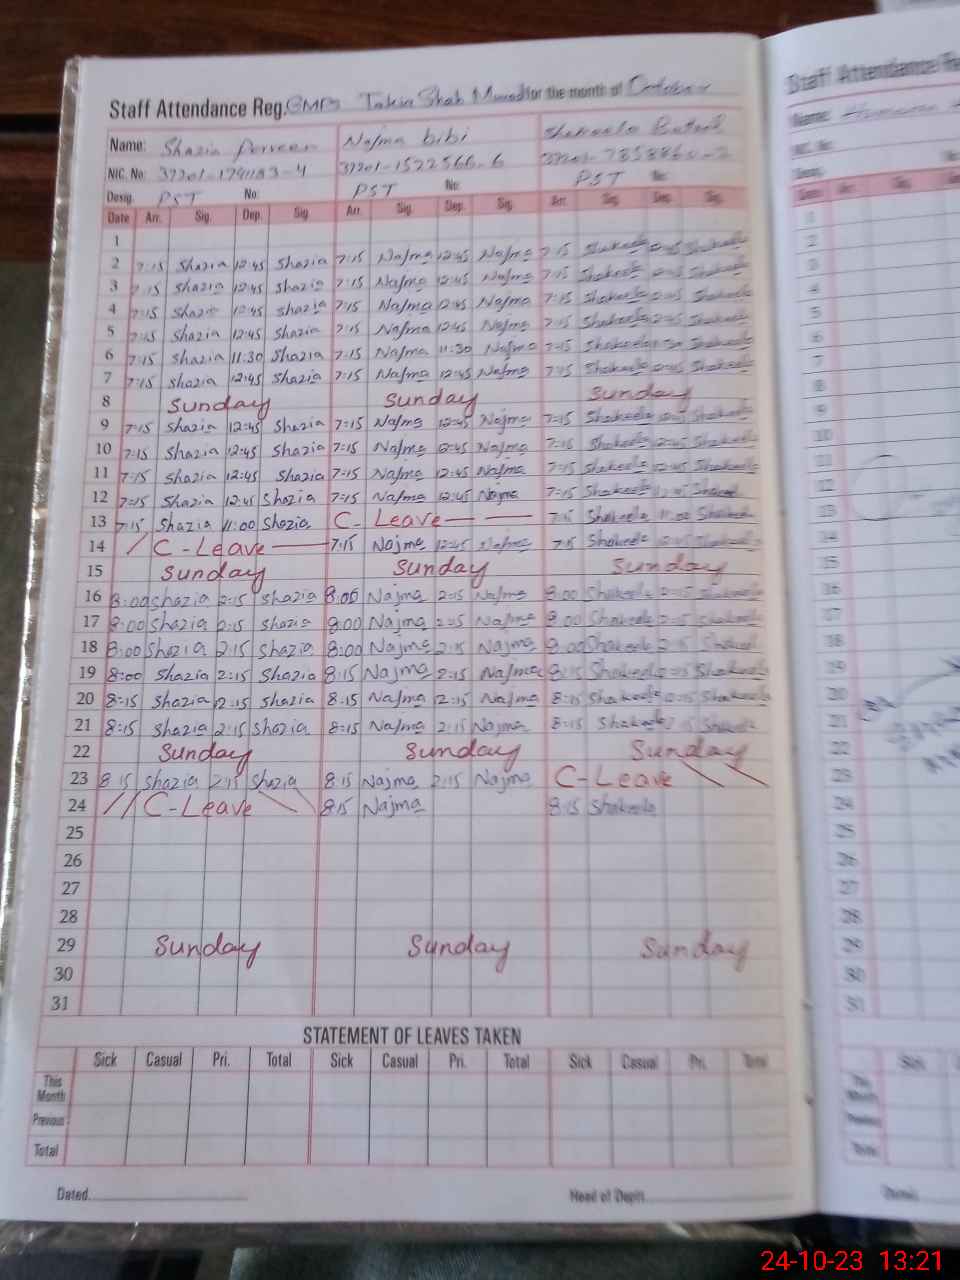 Staff Attendance Reg. GMPS Takia Shah Murad for the month of October
Name: Shazia Perveen Najma bibi Shakeela
NIC. No: 37201-1522566-6
Desig. PST No: PST No: PST No:
Date Arr. Sig. Dep. Sig. Arr. Sig. Dep. Sig. Arr. Sig. Dep. Sig.
1
2 7:15 Shazia 12:45 Shazia 7:15 Najma 12:45 Najma 7:15 Shakeela 12:45 Shakeela
3 7:15 Shazia 12:45 Shazia 7:15 Najma 12:45 Najma 7:15 Shakeela 12:45 Shakeela
4 7:15 Shazia 12:45 Shazia 7:15 Najma 12:45 Najma 7:15 Shakeela 12:45 Shakeela
5 7:15 Shazia 12:45 Shazia 7:15 Najma 12:45 Najma 7:15 Shakeela 12:45 Shakeela
6 7:15 Shazia 11:30 Shazia 7:15 Najma 11:30 Najma 7:15 Shakeela 11:30 Shakeela
7 7:15 Shazia 12:45 Shazia 7:15 Najma 12:45 Najma 7:15 Shakeela 12:45 Shakeela
8 Sunday Sunday Sunday
9 7:15 Shazia 12:45 Shazia 7:15 Najma 12:45 Najma 7:15 Shakeela 12:45 Shakeela
10 7:15 Shazia 12:45 Shazia 7:15 Najma 12:45 Najma 7:15 Shakeela 12:45 Shakeela
11 7:15 Shazia 12:45 Shazia 7:15 Najma 12:45 Najma 7:15 Shakeela 12:45 Shakeela
12 7:15 Shazia 12:45 Shazia 7:15 Najma 12:45 Najma 7:15 Shakeela 12:45 Shakeela
13 7:15 Shazia 11:00 Shazia C-Leave 7:15 Shakeela 11:00 Shakeela
14 C-Leave 7:15 Najma 12:45 Najma 7:15 Shakeela 12:45 Shakeela
15 Sunday Sunday Sunday
16 8:00 Shazia 2:15 Shazia 8:00 Najma 2:15 Najma 8:00 Shakeela 2:15 Shakeela
17 8:00 Shazia 2:15 Shazia 8:00 Najma 2:15 Najma 8:00 Shakeela 2:15 Shakeela
18 8:00 Shazia 2:15 Shazia 8:00 Najma 2:15 Najma 8:00 Shakeela 2:15 Shakeela
19 8:00 Shazia 2:15 Shazia 8:15 Najma 2:15 Najma 8:15 Shakeela 2:15 Shakeela
20 8:15 Shazia 12:15 Shazia 8:15 Najma 12:15 Najma 8:15 Shakeela 12:15 Shakeela
21 8:15 Shazia 2:15 Shazia 8:15 Najma 2:15 Najma 8:15 Shakeela 2:15 Shakeela
22 Sunday Sunday Sunday
23 8:15 Shazia 2:15 Shazia 8:15 Najma 2:15 Najma C-Leave
24 C-Leave 8:15 Najma 8:15 Shakeela
25
26
27
28
29 Sunday Sunday Sunday
30
31
STATEMENT OF LEAVES TAKEN
Sick Casual Pri. Total Sick Casual Pri. Total Sick Casual Pri. Total
This Month
Previous
Total
Dated Head of Deptt.
Staff Attendance Re
Name:
NIC. No:
24-10-23 13:21